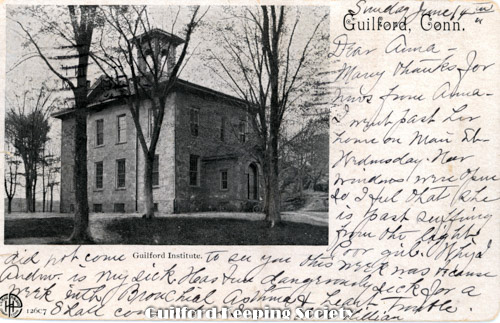 Sunday June 14th
Guilford, Conn.
Dear Anna -
Many thanks for
news from Anna-
I went past her
home on Main St
Wednesday. Her
windows were open
so I feel that she
is past suffering
from the light
Poor girl. Why I
did not come to see you this week was because
Guilford Institute.
Andw. is very sick Has been dangerously sick for a
week with Bronchial Asthma & Heart Trouble.
Shall co
Lillian
12667
Guilford Keeping Society